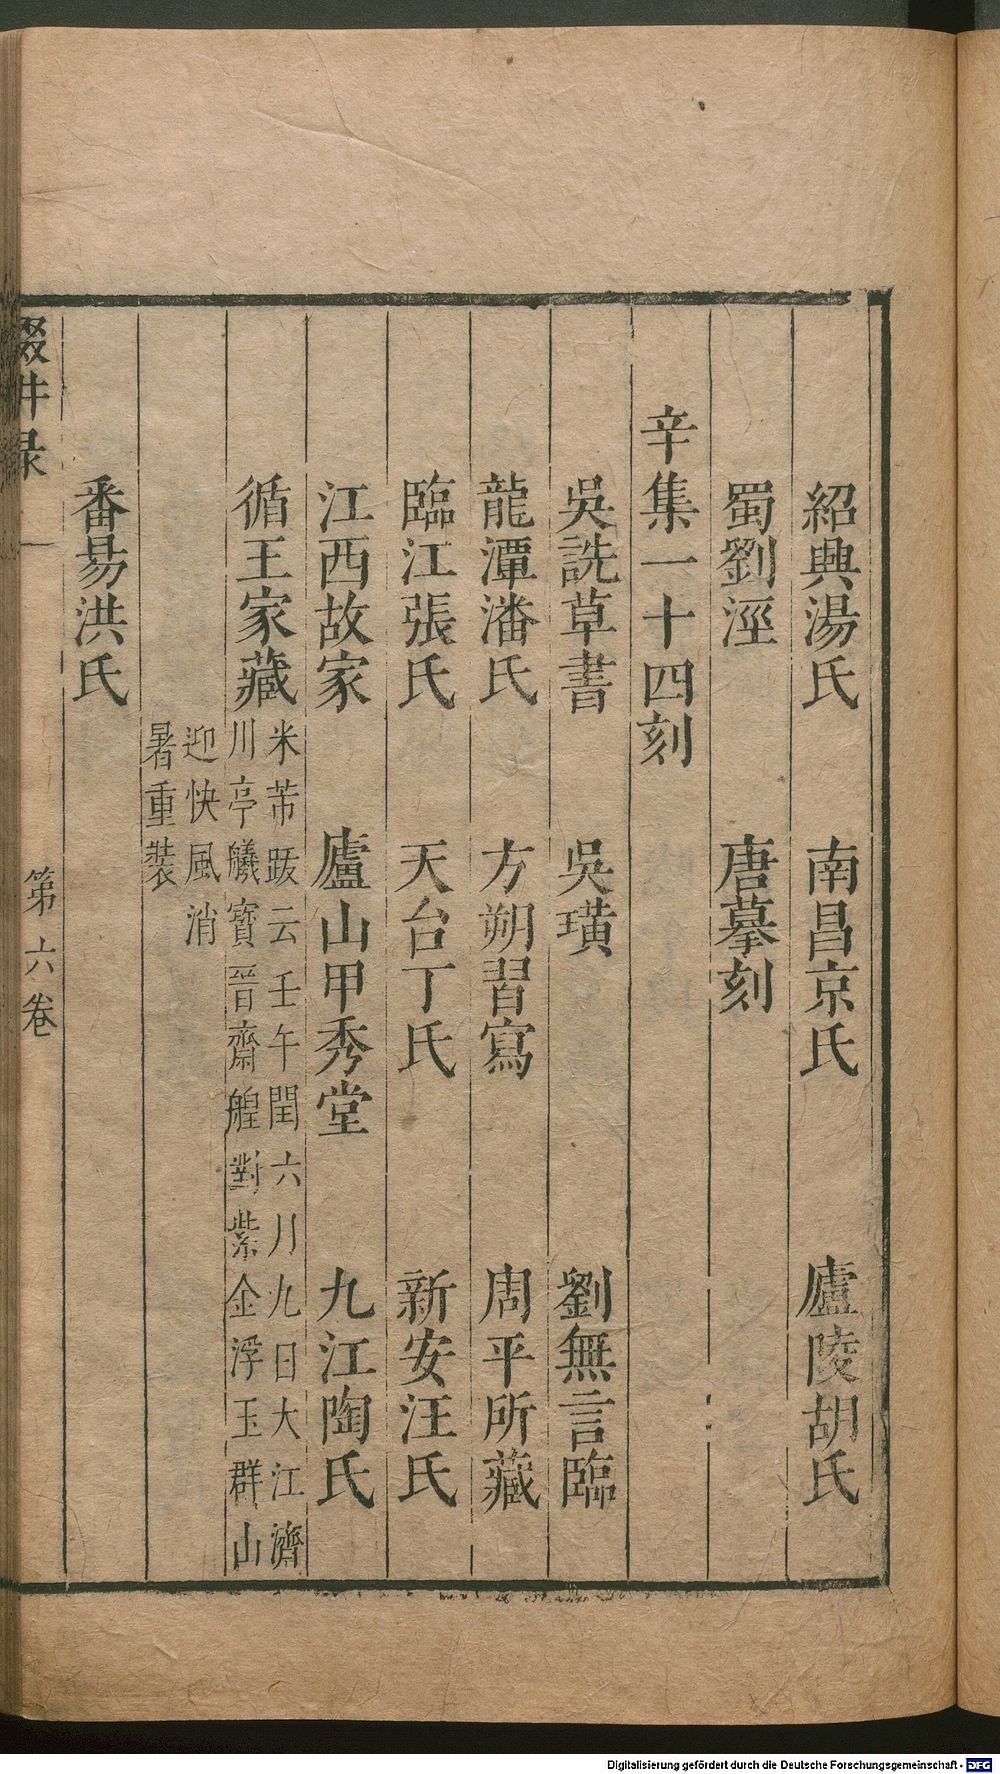 紹興湯氏　南昌京氏　廬陵胡氏
蜀劉涇　唐摹刻
辛集一十四刻
吳説草書　吳璜　劉無言臨
龍潭潘氏　方朔習寫　周平所藏
臨江張氏　天台丁氏　新安汪氏
江西故家　廬山甲秀堂　九江陶氏
循王家藏
米芾跋云壬午閏六川九日大江濟
川亭艤寶晉齋艎對紫金浮玉群山
迎快風消
暑重裝
番昜洪氏
輟畊录　一　第六卷
Digitalisierung gefördert durch die Deutsche Forschungsgemeinschaft - DFG